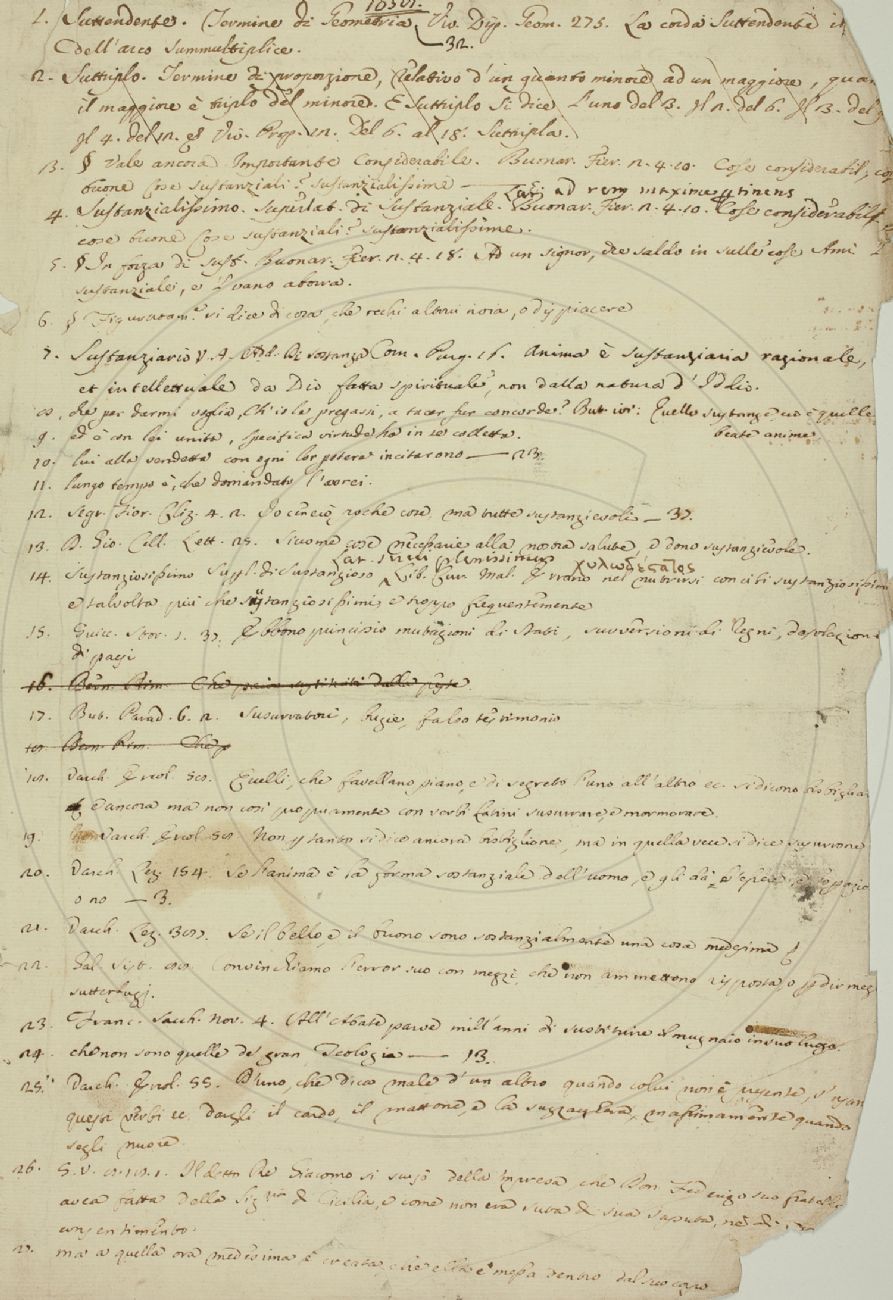 1. Suttendente. Termine di Geometria, Viv. Dip. Geom. 275. La corda suttendente il
dell'arco summultiplice. 32.
2. Suttriplo. Termine di proporzione, relativo d'un quanto minore ad un maggiore,
il maggiore è triplo del minore. E suttriplo si dice l'uno del 3. Il 2. del 6. Il 3. del 9
Il 4. del 12. Viv. Prop. 12. Del 6. al 18. suttripla.
3. § Vale ancora Importante Considerabile. Buonar. Fier. 2. 4. 10. Cose considerabil,
buone cose sustanziali? sustanzialissime — Lat. ad rem maxime pertinens
4. Sustanzialissimo. Superlat. di Sustanziale. Buonar. Fier. 2. 4. 10. Cose considerabili
cose buone cose sustanziali? sustanzialissime.
5. § In forza di sust. Buonar. Fier. 2. 4. 18. Ad un signor, che saldo in sulle cose Ami
sustanziale, e 'l vano aborra.
6. § Figuratam. si dice di cosa, che rechi altrui noia, o dispiacere
7. Sustanziario V. A. Add. Di sostanza Com. Purg. 16. Anima è sustanziaria razionale,
et intellettuale da Dio fatta spirituale, non dalla natura d'Iddio.
8. che per darmi voglia, Ch'io le pregassi, a tacer fur concorde? But ivi: Quelle sustanze, cioè quelle
beate anime
9. ed è con lei unita, specifica virtude ha in se colletta.
10. lui alla vendetta con ogni lor potere incitarono — 23.
11. lungo tempo è, che domandato l'avrei.
12. Segr. Fior. Cliz. 4. 2. Io cinciò poche cose, ma tutte sustanzievoli — 37.
13. D. Gio. Cell. Lett. 25. Siccome cose necessarie alla nostra salute, e dono sustanzievole.
Lat. succi plenissimus χυλωδέστατος
14. Sustanziosissimo Superl. di Sustanzioso Lib. Cur. Mal. Errano nel nutrirsi con cibi sustanziosissimi
e talvolta più che sustanziosissimi, e troppo frequentemente
15. Guicc. Stor. 1. 37. Ebbono principio mutazioni di Stati, sovversioni di Regni, desolazioni
di paesi
16. Bern. Rim. Che
17. But. Parad. 6. 2. Susurratori, bugie, falso testimonio
18. Bern. Rim. Che p
18. Varch. Ercol. 58. Quelli, che favellano piano, e di segreto l'uno all'altro ec. si dicono bisbigliare
e ancora ma non così propriamente con verbi Latini susurrare, e mormorare.
19. Varch. Ercol. 58. Non per tanto si dice ancora bisbiglione, ma in quella vece si dice susurrone
20. Varch. Lez. 154. Se l'anima è la forma sostanziale dell'uomo, e gli dà l'essere,
o no — 3.
21. Varch. Lez. 387. Se il bello, e il buono sono sostanzialmente una cosa medesima
22. Gal. Sist. Convinchiamo l'error suo con mezzi, che non ammettono risposta, o per dir meglio
sutterfugj.
23. Franc. Sacch. Nov. 4. All'Abate parve mill'anni di sustituire il mugnaio in suo luogo.
24. che non sono quelle de' gran Teologia — 13.
25. Varch. Ercol. 55. D'uno, che dica male d'un altro quando colui non è presente, s'usan
questi verbi ec. dargli il cardo, il mattone, e la suzzacchera, massimamente quando
segli nuoce.
26. G. V. 8. 18. 1. Il detto Re Giacomo si scusò della impresa che Don Federigo suo fratello
avea fatta della Signoria di Cicilia, e come non era suta di sua saputa, nè di
consentimento.
27. ma a quella ora medesima è creata, che ella è messa dentro dal suo corpo